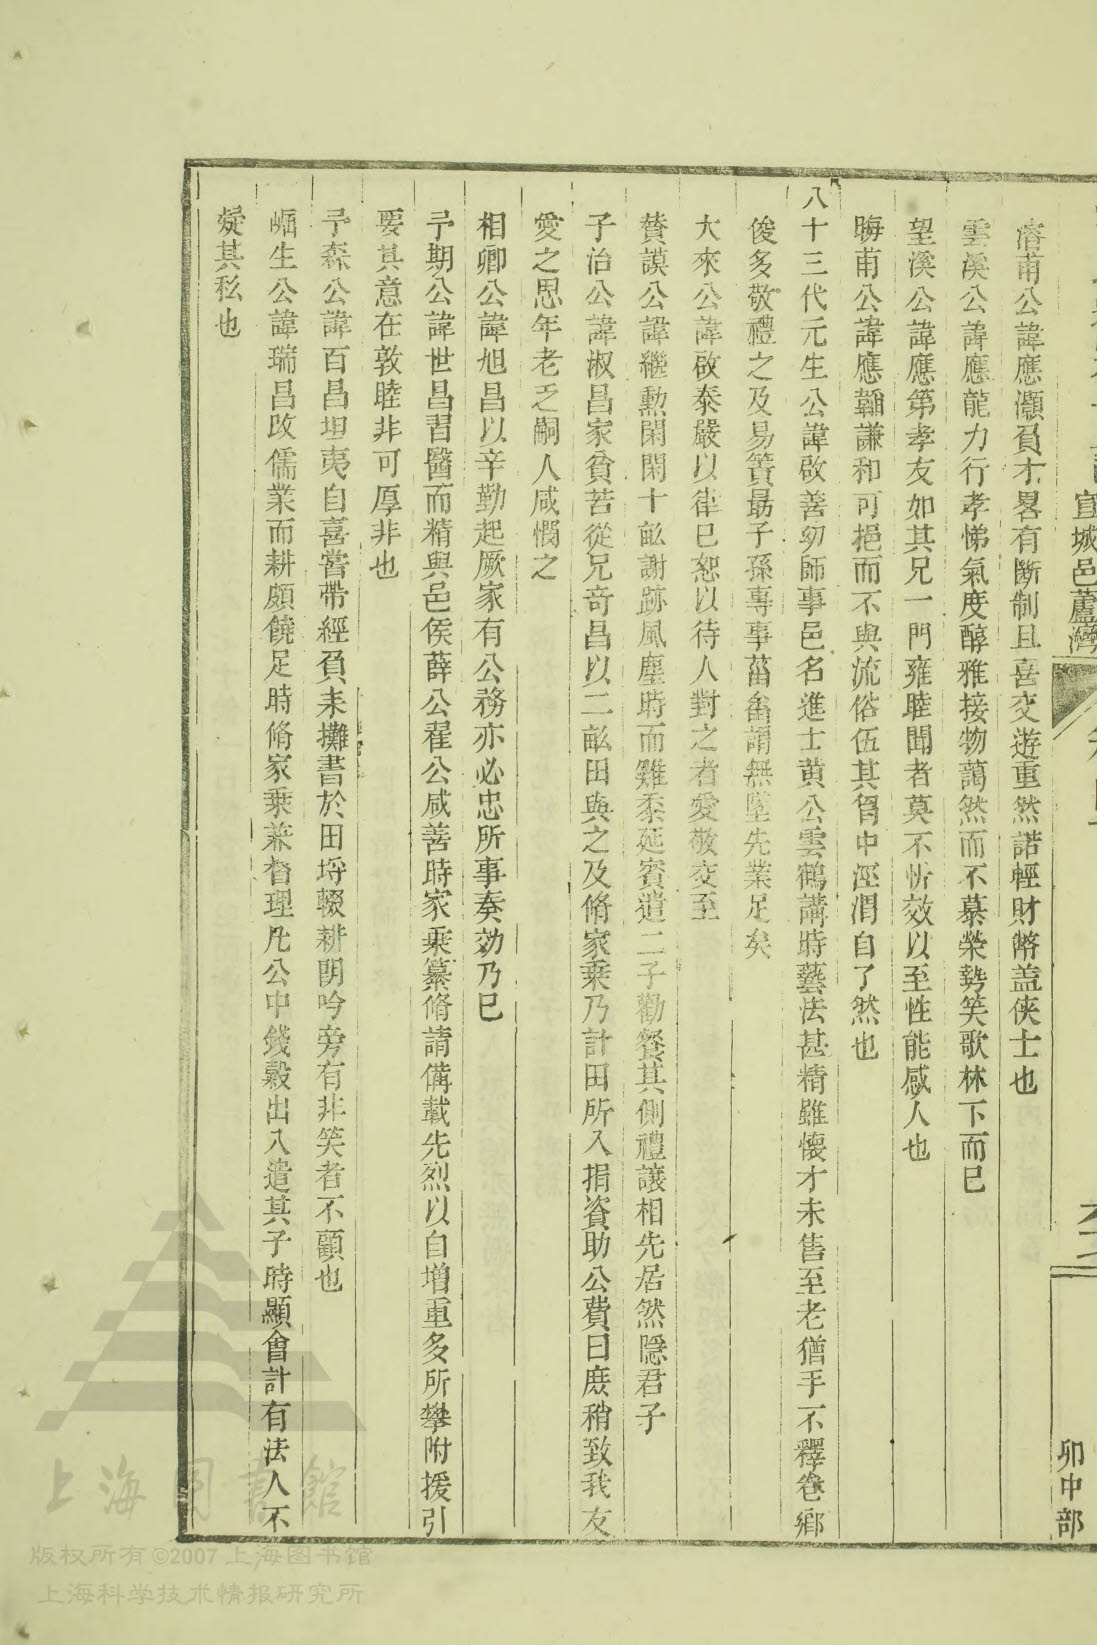 宣城邑蘆灣
卯中部
溶甫公諱應灝負才畧有斷制且喜交遊重然諾輕財幣盖俠士也
雲溪公諱應龍力行孝悌氣度醇雅接物藹然而不慕榮勢笑歌林下而已
望溪公諱應第孝友如其兄一門雍睦聞者莫不忻效以至性能感人也
晦甫公諱應韜謙和可挹而不與流俗伍其胷中涇渭自了然也
八十三代元生公諱啟善幼師事邑名進士黄公雲鶴講時藝法甚精雖懐才未售至老猶手不釋卷鄉
俊多敬禮之及易簀朂子孫專事菑畬謂無墜先業足矣
大來公諱啟泰嚴以律已恕以待人對之者愛敬交至
賛謨公諱繼勲閑閑十畝謝跡風塵時而雞黍延賓遣二子勸餐其側禮讓相先居然隱君子
子治公諱淑昌家貧苦從兄奇昌以二畝田與之及脩家乗乃計田所入捐資助公費曰庶稍致我友
愛之思年老乏嗣人咸憫之
相卿公諱旭昌以辛勤起厥家有公務亦必忠所事奏効乃已
予期公諱世昌習醫而精與邑侯薛公翟公咸善時家乗纂脩請偹載先烈以自增重多所攀附援引
要其意在敦睦非可厚非也
予森公諱百昌坦夷自喜嘗帶經負耒攤書於田埓輟耕閉吟旁有非笑者不顧也
崛生公諱瑞昌改儒業而耕頗饒足時脩家乗兼督理凡公中錢糓出入遣其子時顯會計有法人不
疑其私也
上海圖書館
版权所有©2007上海图书馆
上海科学技术情报研究所